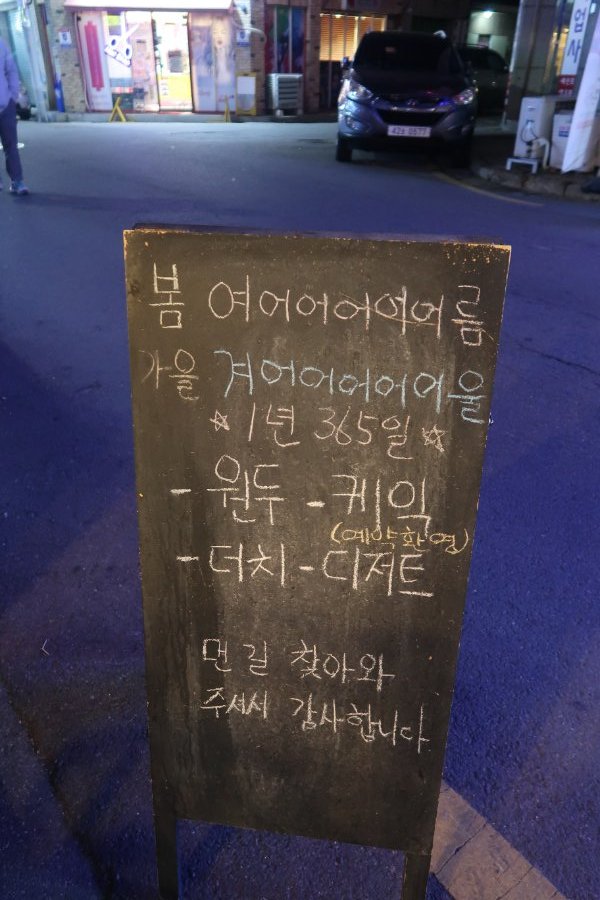 봄 여어어어어어어름
가을 겨어어어어어어울
☆1년 365일☆
- 원두 - 케익
(예약환영)
- 더치 - 디저트
먼 길 찾아와
주셔서 감사합니다